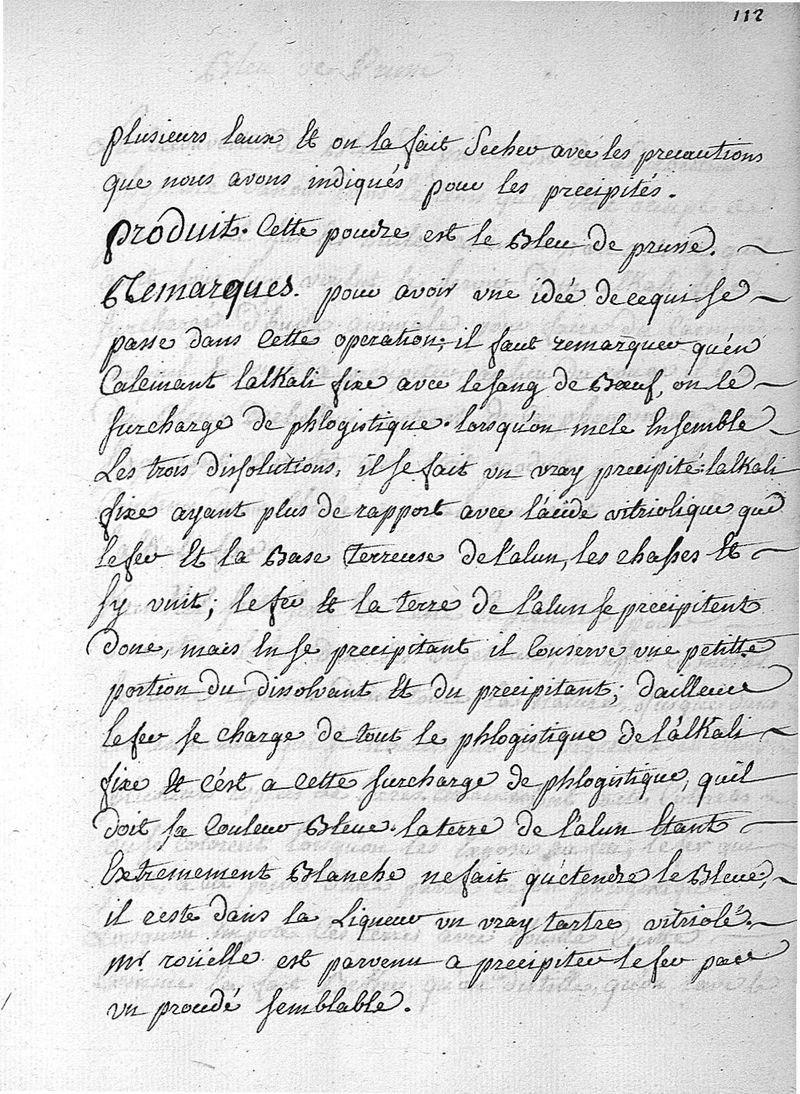 112
plusieurs Eaux Et on la fait Secher avec les precautions
que nous avons indiqués pour les precipités.
produit. Cette poudre est le Bleu de prusse.
Remarques. pour avoir une idée de cequi se
passe dans Cette operation, il faut remarquer qu'en
Calcinant lalkali fixe avec le sang de Bœuf, on le
surcharge de phlogistique. lorsqu'on mele Ensemble
Les trois dissolutions, il se fait un vray precipité: lalkali
fixe ayant plus de rapport avec l'acide vitriolique que
le fer Et la Base Terreuse de l'alun, les chasses Et
sy unit; le fer Et la terre de l'alun se precipitent
donc, mais En se precipitant il Conserve une petitte
portion du dissolvant Et du precipitant; dailleur
le fer se charge de tout le phlogistique de l'alkali
fixe Et C'est a Cette surcharge de phlogistique, quil
doit la Couleur Bleue. la terre de l'alun Etant
Extremement Blanche ne fait qu'étendre le Bleue,
il reste dans la Liqueur un vray tartre vitriolé.
mr. roüelle est parvenu a precipiter le fer par
un procedé semblable.